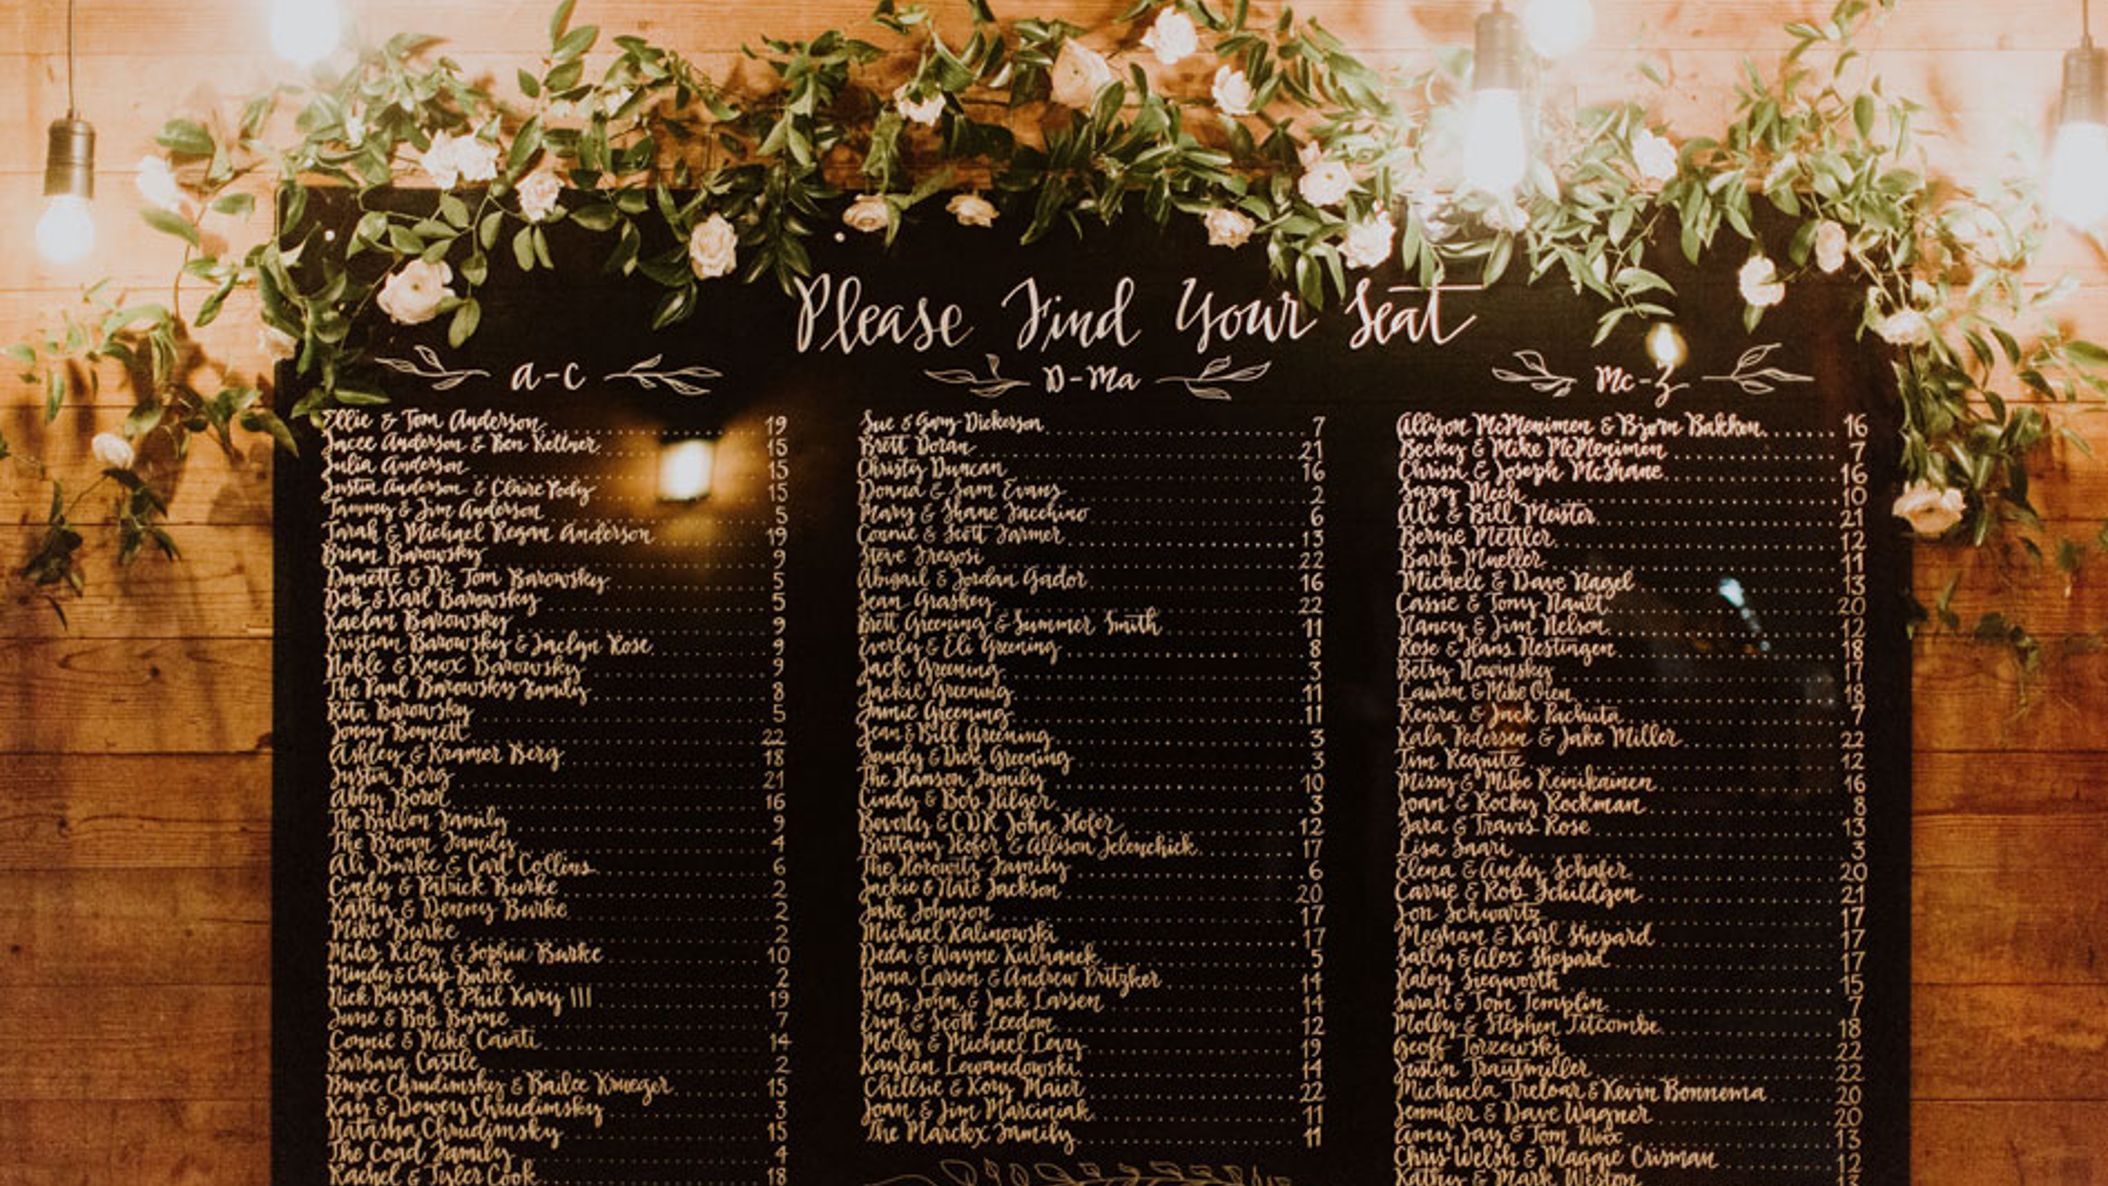 Please Find Your Seat
A-C
Ellie & Tom Anderson 19
Jacee Anderson & Ben Kellner 15
Julia Anderson 15
Justin Anderson & Claire Pody 15
Tammy & Jim Anderson 5
Tarah & Michael Regan Anderson 19
Brian Barowsky 9
Danette & Dr. Tom Barowsky 5
Deb & Karl Barowsky 5
Kaelan Barowsky 9
Kristian Barowsky & Jaclyn Rose 9
Noble & Knox Barowsky 9
The Paul Barowsky Family 8
Rita Barowsky 5
Jonny Bennett 22
Ashley & Kramer Berg 18
Justin Berg 21
Abby Borer 16
The Brillon Family 9
The Brown Family 4
Ali Burke & Carl Collins 6
Cindy & Patrick Burke 2
Kathy & Denny Burke 2
Mike Burke 2
Miles, Riley, & Sophia Burke 10
Mindy & Chip Burke 2
Nick Bussa & Phil Kary III 19
June & Bob Byrne 7
Connie & Mike Caiati 14
Barbara Castle 2
Bryce Chrudimsky & Bailee Krueger 15
Kay & Dewey Chrudimsky 3
Natasha Chrudimsky 15
The Coad Family 4
Rachel & Tyler Cook 18
D-Ma
Sue & Gary Dickerson 7
Brett Doran 21
Christy Duncan 16
Donna & Sam Evans 2
Mary & Shane Facchino 6
Connie & Scott Farmer 13
Steve Fregosi 22
Abigail & Jordan Gador 16
Sean Graskey 22
Brett Greening & Summer Smith 11
Everly & Eli Greening 8
Jack Greening 3
Jackie Greening 11
Jamie Greening 11
Jean & Bill Greening 3
Sandy & Dick Greening 3
The Hanson Family 10
Cindy & Bob Hilger 3
Beverly & CDR John Hofer 12
Brittany Hofer & Allison Jelenchick 17
The Horowitz Family 6
Jackie & Nate Jackson 20
Jake Johnson 17
Michael Kalinowski 17
Deda & Wayne Kulhanek 5
Dana Larsen & Andrew Pritzker 14
Meg, John, & Jack Larsen 14
Erin & Scott Leedom 12
Molly & Michael Levy 19
Kaylan Lewandowski 14
Chillsie & Kory Maier 22
Joan & Jim Marciniak 11
The Marckx Family 11
Mc-Z
Allison McMenimen & Bjorn Bakken 16
Becky & Mike McMenimen 7
Chrissi & Joseph McShane 16
Suzy Mech 10
Ali & Bill Meister 21
Bernie Mettler 12
Barb Mueller 11
Michele & Dave Nagel 13
Cassie & Tony Nault 20
Nancy & Jim Nelson 12
Rose & Hans Nestingen 18
Betsy Nowinsky 17
Lauren & Mike Oien 18
Renira & Jack Pachuta 7
Kala Pedersen & Jake Miller 22
Tim Regnitz 12
Missy & Mike Reinikainen 16
Joan & Rocky Rockman 8
Sara & Travis Rose 13
Lisa Saari 3
Elena & Andy Schafer 20
Carrie & Rob Schildgen 21
Jon Schwartz 17
Meghan & Karl Shepard 17
Sally & Alex Shepard 17
Haley Siegworth 15
Sarah & Tom Templin 7
Molly & Stephen Titcombe 18
Geoff Torzewski 22
Justin Trautmiller 22
Michaela Treloar & Kevin Bonnema 20
Jennifer & Dave Wagner 20
Amy Jay & Tom Weix 13
Chris Welsh & Maggie Crisman 12
Kathy & Mark Weston 13